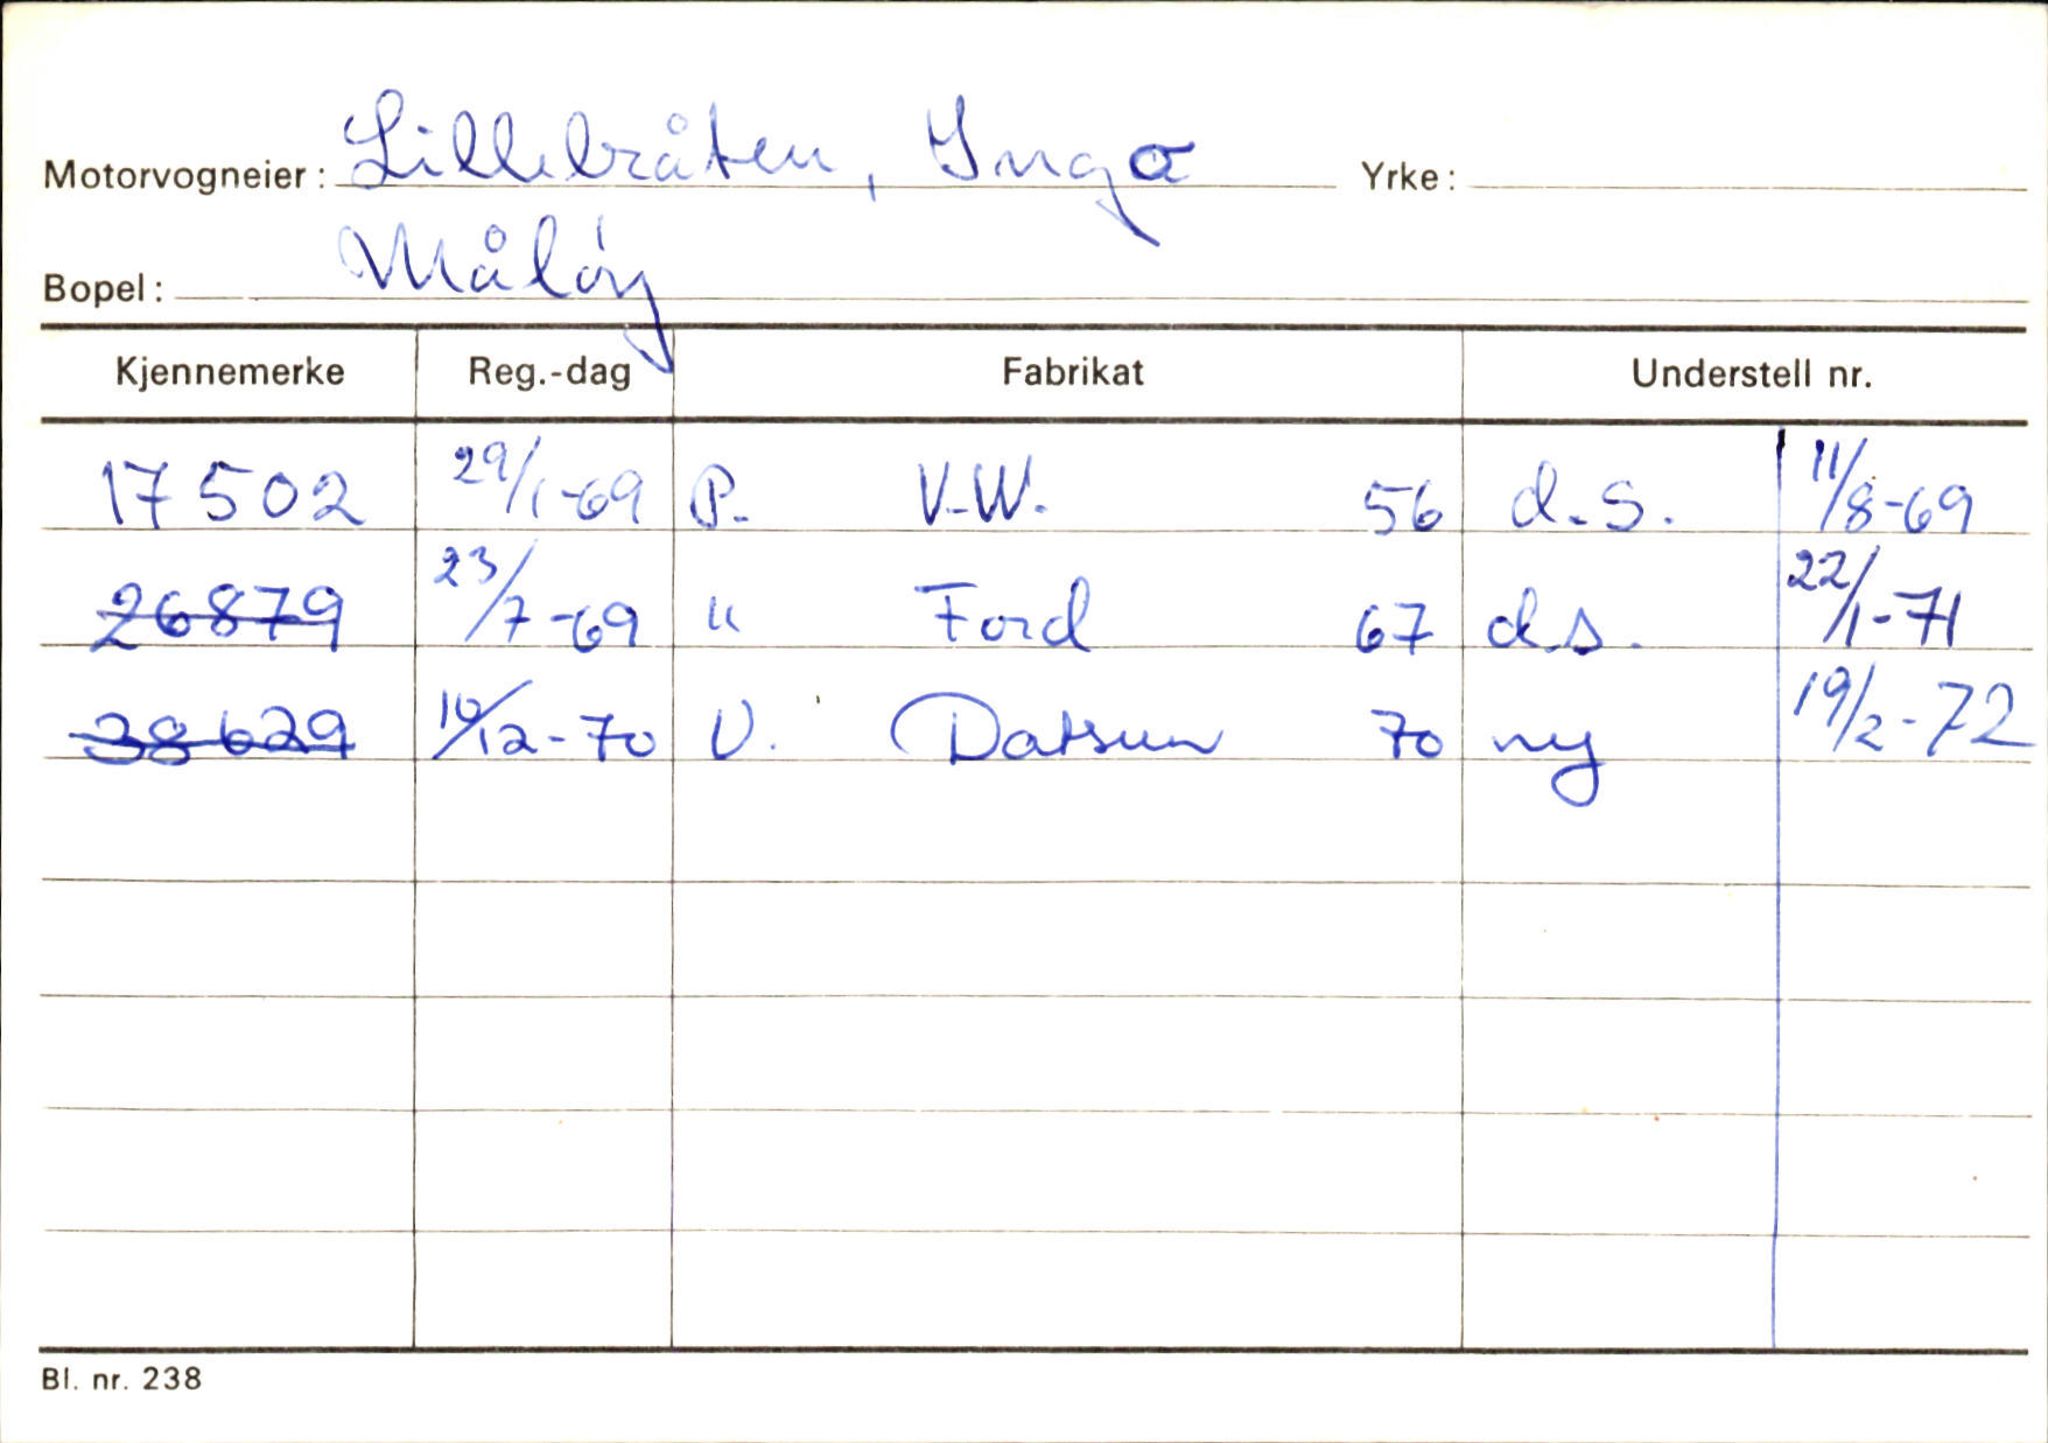 Motorvogneier: Lillebråten, Inga Yrke:
Bopel: Måløy
Kjennemerke Reg.-dag Fabrikat Understell nr.
17502 29/1-69 P. V.W. 56 d.s. 11/8-69
26879 23/7-69 " Ford 67 d.s. 22/1-71
38629 10/12-70 V. Datsun 70 ny 19/2-72
Bl. nr. 238